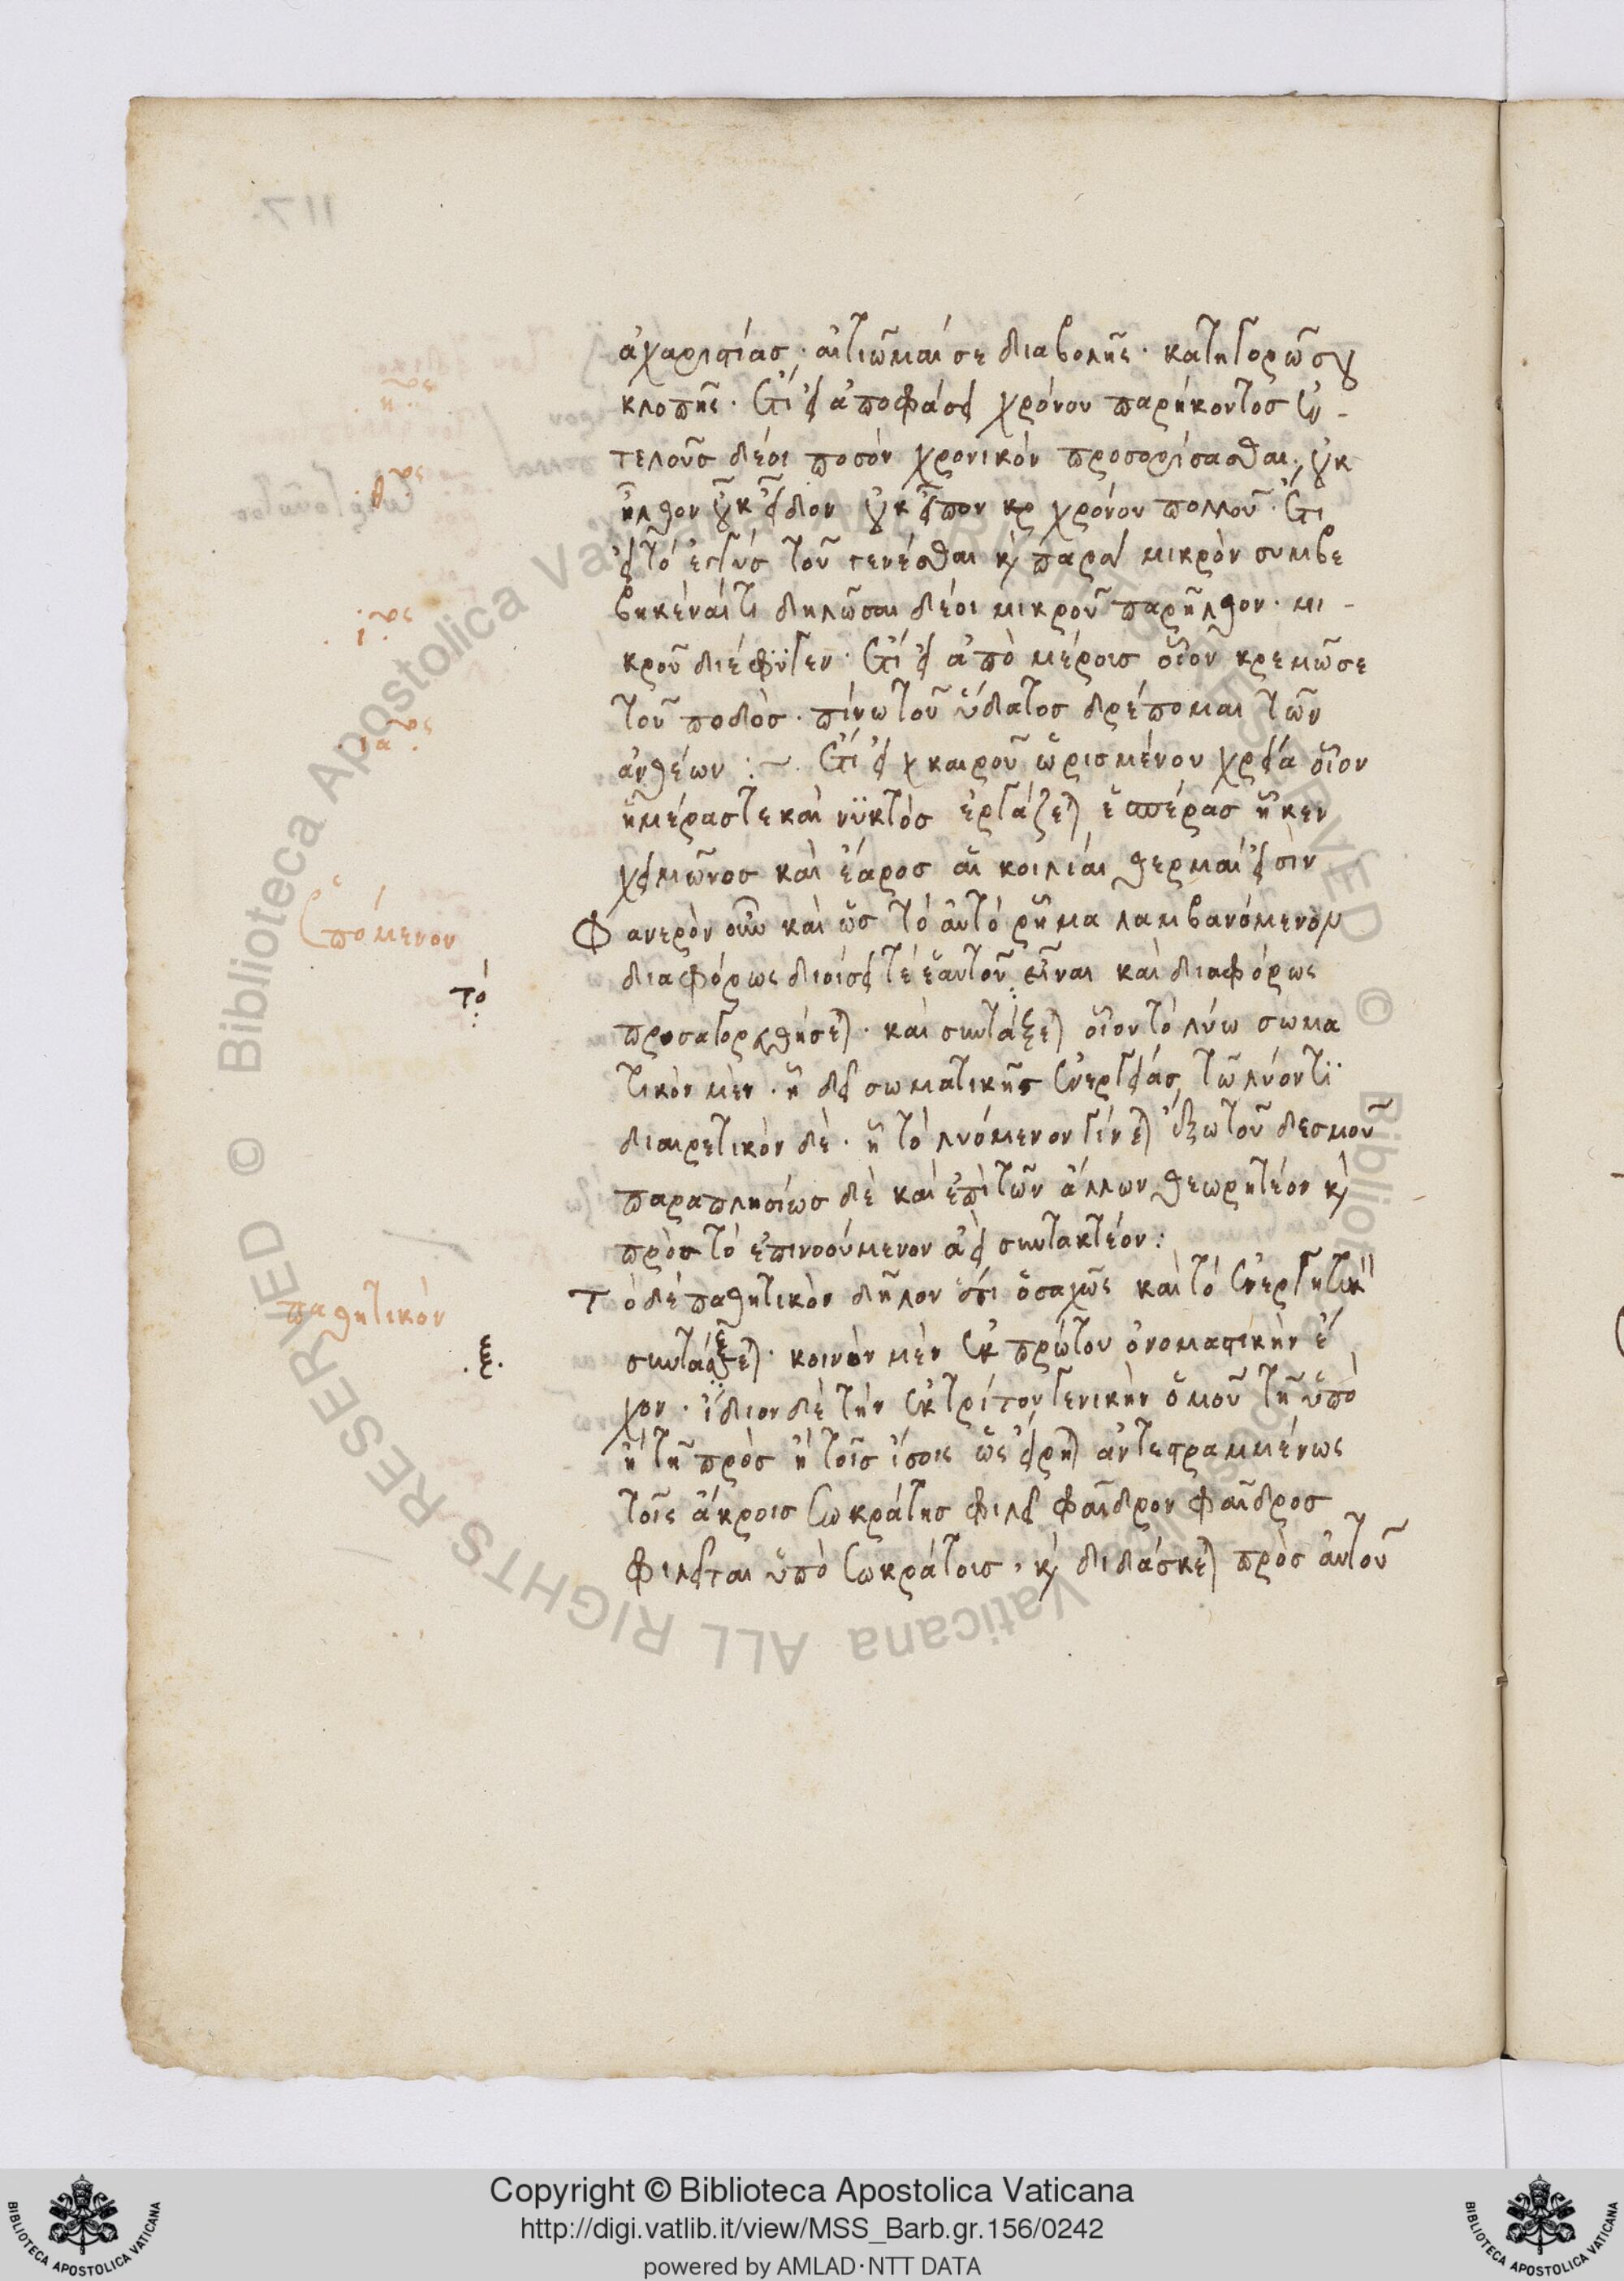 ἀχαριστίας· αἰτιῶμαί σε διαβολῆς· κατηγορῶ σου
κλοπῆς· ἔτι εἰ ἀποφάσει χρόνου παρήκοντος ἐν-
τελοῦς δέοι ποσὸν χρονικὸν προσορίσασθαι, οὐκ
ἦλθον οὐκ εἶδον οὐκ εἶπον χρόνου πολλοῦ· ἔτι
εἰ τὸ ἐγγύς τοῦ γενέσθαι κ παρὰ μικρὸν συμβε
βηκέναι τι δηλῶσαι δέοι μικροῦ παρῆλθον· μι-
κροῦ διέφυγεν· ἔτι εἰ ἀπὸ μέρους οἷον κρεμῶ σε
τοῦ ποδός· πίνω τοῦ ὕδατος δρέπομαι τῶν
ἀνθέων :~ ἔτι εἰ καιροῦ ὡρισμένου χρεία οἷον
ἡμέρας τε καὶ νυκτός ἐργάζεται ἑσπέρας ἧκεν
χειμῶνος καὶ ἔαρος αἱ κοιλίαι θερμαί εἰσιν
Φανερὸν οὖν καὶ ὡς τὸ αὐτό ῥῆμα λαμβανόμενον
διαφόρως διοίσει τέ ἑαυτοῦ εἶναι καὶ διαφόρως
προσαγορευθήσεται· καὶ συντάξεται οἷον τὸ λύω σωμα
τικὸν μὲν· ἢ δεῖ σωματικῆς ἐνεργείας τῶ λύοντι
διαιρετικὸν δὲ· ἢ τὸ λυόμενον γίνεται ἔξω τοῦ δεσμοῦ
παραπλησίως δὲ καὶ ἐπὶ τῶν ἄλλων θεωρητέον κ
πρὸς τὸ ἐπινοούμενον ἀεὶ συντακτέον:
Τὸ δέ παθητικὸν δῆλον ὅτι ὁσαχῶς καὶ τὸ ἐνεργητικ
συντάξεται· κοινὸν μὲν ἐκ πρώτου ὀνομαστικὴν ἔ
χον· ἴδιον δὲ τὴν ἐκ τρίτου γενικὴν ὁμοῦ τῆ ὑπὸ
ἢ τῆ πρὸς ἢ τοῖς ἴσοις ὡς εἴρηται ἀντεστραμμένως
τοῖς ἄκροις Σωκράτης φιλεῖ Φαῖδρον Φαῖδρος
φιλεῖται ὑπὸ Σωκράτους, κ διδάσκεται πρὸς αὐτοῦ
θ
ι
ια
ἑπόμενον
τό
παθητικὸν
.ξ.
117
Copyright © Biblioteca Apostolica Vaticana
http://digi.vatlib.it/view/MSS_Barb.gr.156/0242
powered by AMLAD·NTT DATA
BIBLIOTECA APOSTOLICA VATICANA
BIBLIOTECA APOSTOLICA VATICANA
© Biblioteca Apostolica Vaticana ALL RIGHTS RESERVED © Biblioteca Apostolica Vaticana ALL RIGHTS RESERVED